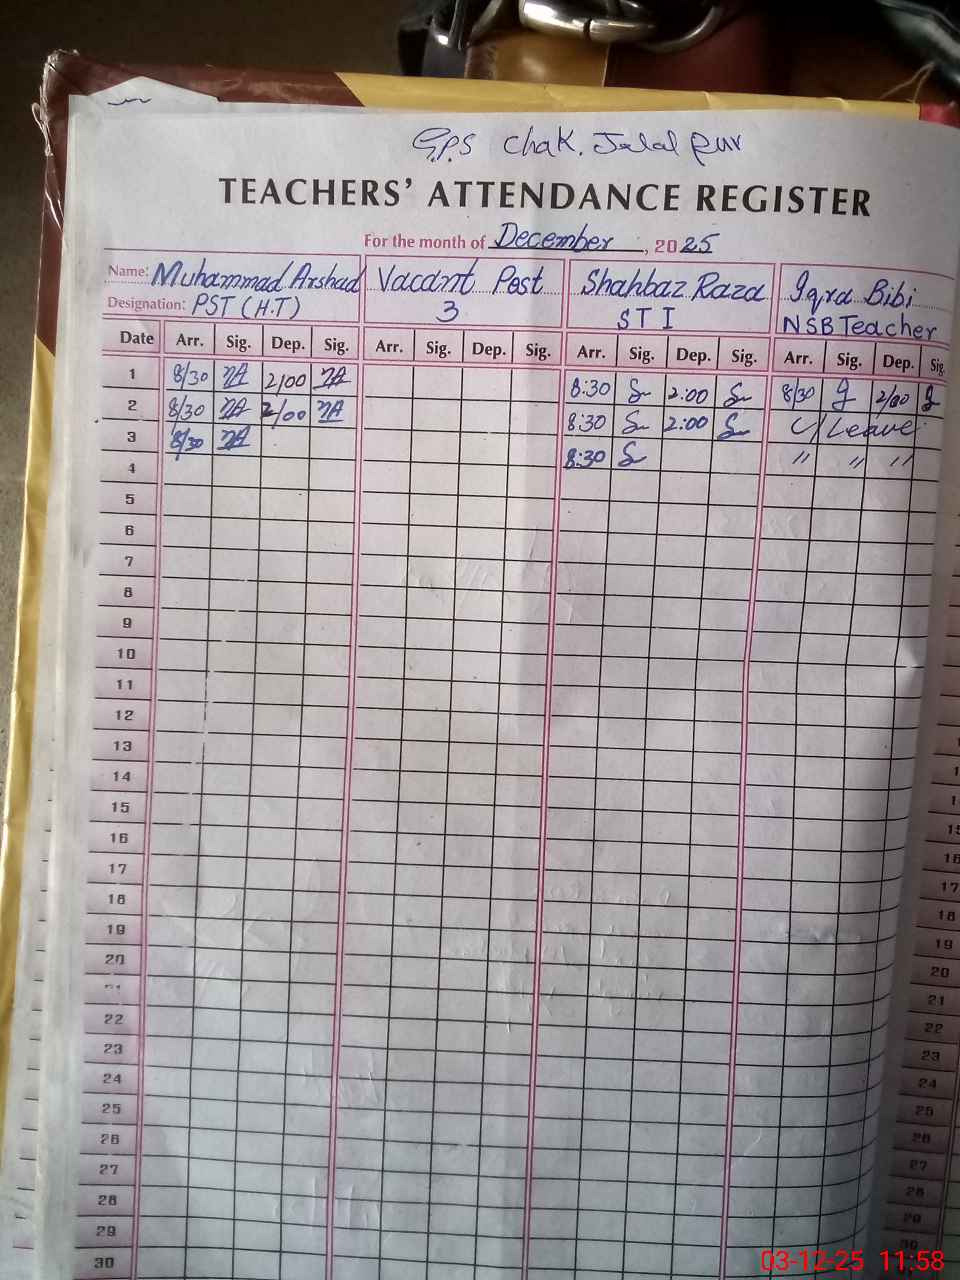 G.P.S Chak. Jalal pur
TEACHERS' ATTENDANCE REGISTER
For the month of December, 2025
Name: Muhammad Arshad Vacant Post Shahbaz Raza Iqra Bibi
Designation: PST (H.T) 3 STI NSB Teacher
Date Arr. Sig. Dep. Sig. Arr. Sig. Dep. Sig. Arr. Sig. Dep. Sig. Arr. Sig. Dep. Sig.
1 8/30 2/00 8:30 2:00 8/30 2/00
2 8/30 2/00 8:30 2:00 C/Leave
3 8/30 8:30 " " "
4
5
6
7
8
9
10
11
12
13
14
15
16
17
18
19
20
22
23
24
25
26
27
28
29
30
16
17
18
19
20
21
22
23
24
25
26
27
28
29
30
03-12-25 11:58